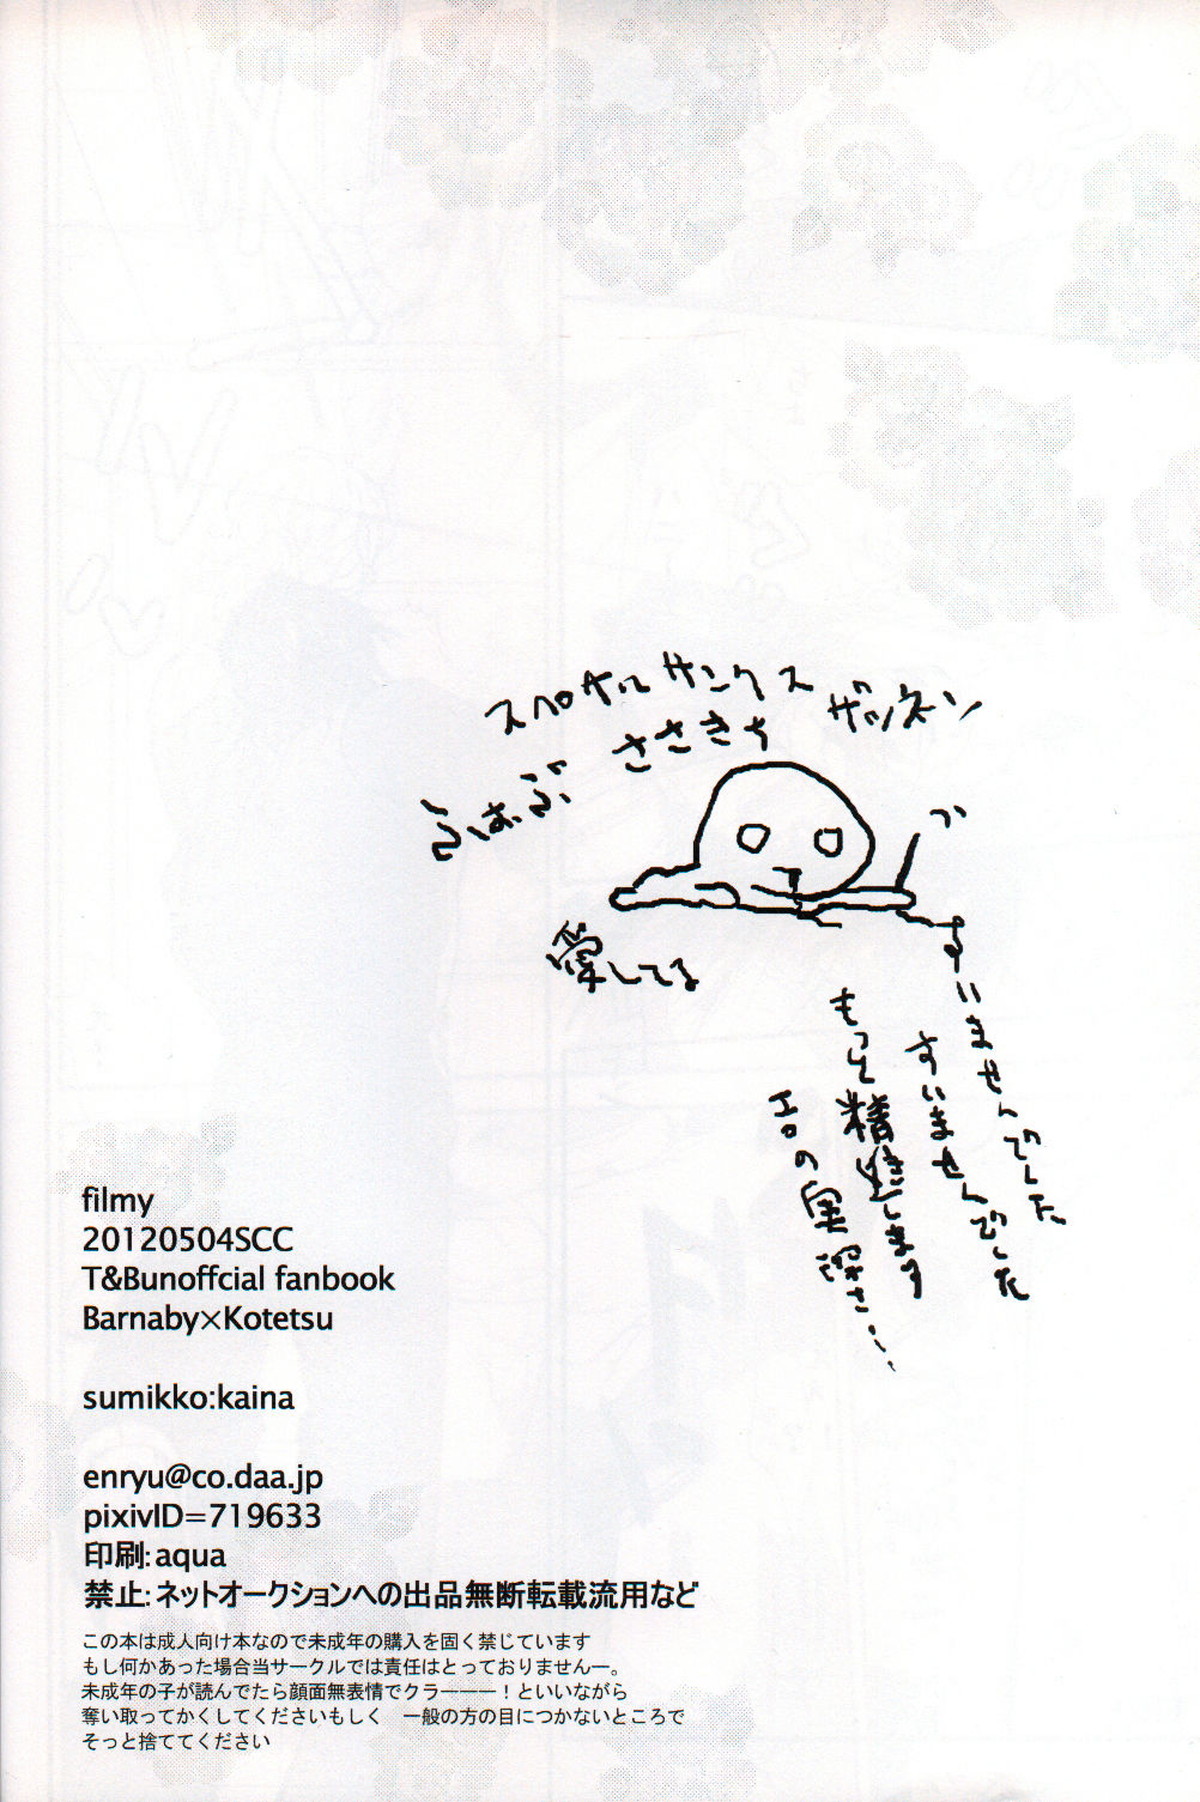 スペサルサンクス
ザッネン
るはぶ ささきち
愛してる
すいませんでした
すいませんでした
もっと精進します
エロの実深さ……
filmy
20120504SCC
T&Bunoffcial fanbook
Barnaby×Kotetsu
sumikko:kaina
enryu@co.daa.jp
pixivID=719633
印刷:aqua
禁止:ネットオークションへの出品無断転載流用など
この本は成人向け本なので未成年の購入を固く禁じています
もし何かあった場合当サークルでは責任はとっておりませんー。
未成年の子が読んでたら顔面無表情でクラーーー!といいながら
奪い取ってかくしてくださいもしく　一般の方の目につかないところで
そっと捨ててください